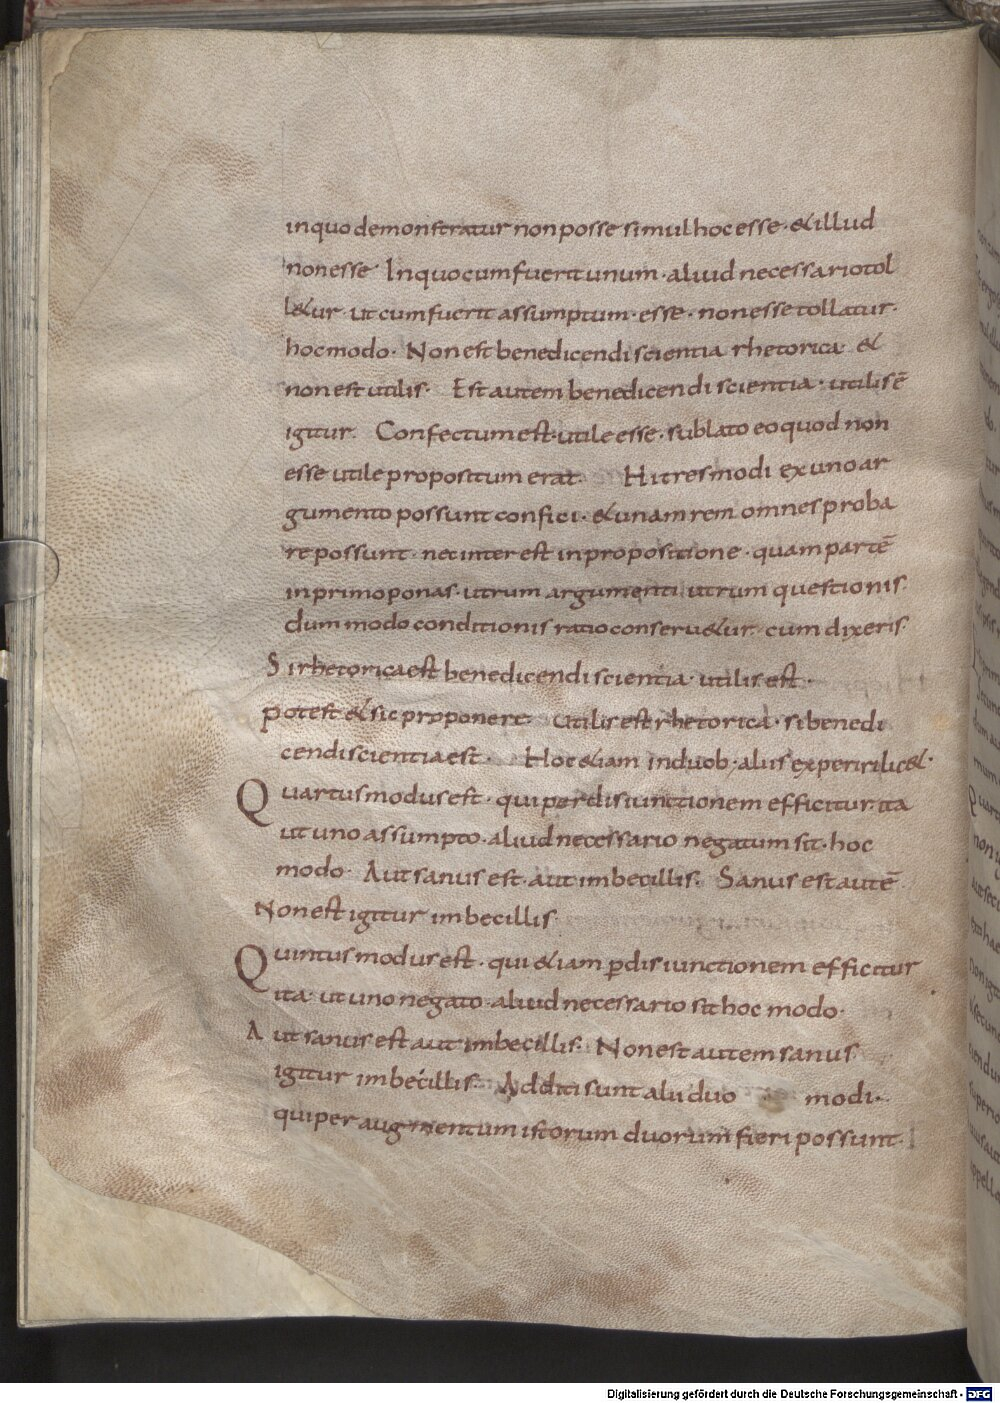 inquo demonstratur non posse simul hoc esse · & illud
non esse In quo cum fuerit unum · aliud necessario tol
l&ur · ut cum fuerit assumptum · esse · non esse tollatur ·
hoc modo · Non est benedicendi scientia rhetorica &
non est utilis · Est autem benedicendi scientia · utilis ē
igitur · Confectum est · utile esse · sublato eo quod non
esse utile propositum erat · Hi tres modi ex uno ar
gumento possunt confici · & unam rem omnes proba
re possunt · nec inter est in propositione · quam partē
in primo ponas · utrum argumenti utrum questionis ·
dum modo conditionis ratio conseru&ur · cum dixeris ·
Si rhetorica est benedicendi scientia · utilis est ·
potest & sic proponere Utilis est rhetorica · si benedi
cendi scientia est · Hoc &iam induob · aliis experiri lic& ·
Quartus modus est · qui per disiunctionem efficitur · ita
ut uno assumpto · aliud necessario negatum sit · hoc
modo · Aut sanus est · aut imbecillis · Sanus est autē
Non est igitur imbecillis ·
Quintus modus est · qui &iam ꝑ disiunctionem efficitur
ita · ut uno negato · aliud necessario sit hoc modo ·
Aut sanus est aut imbecillis · Non est autem sanus
igitur imbecillis · Additi sunt alii duo modi ·
qui per augmentum istorum duorum fieri possunt ·
Digitalisierung gefördert durch die Deutsche Forschungsgemeinschaft - DFG